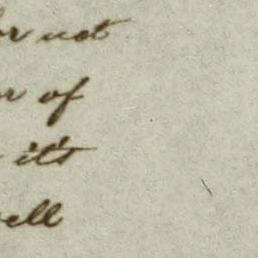 or not
or of
it's
well